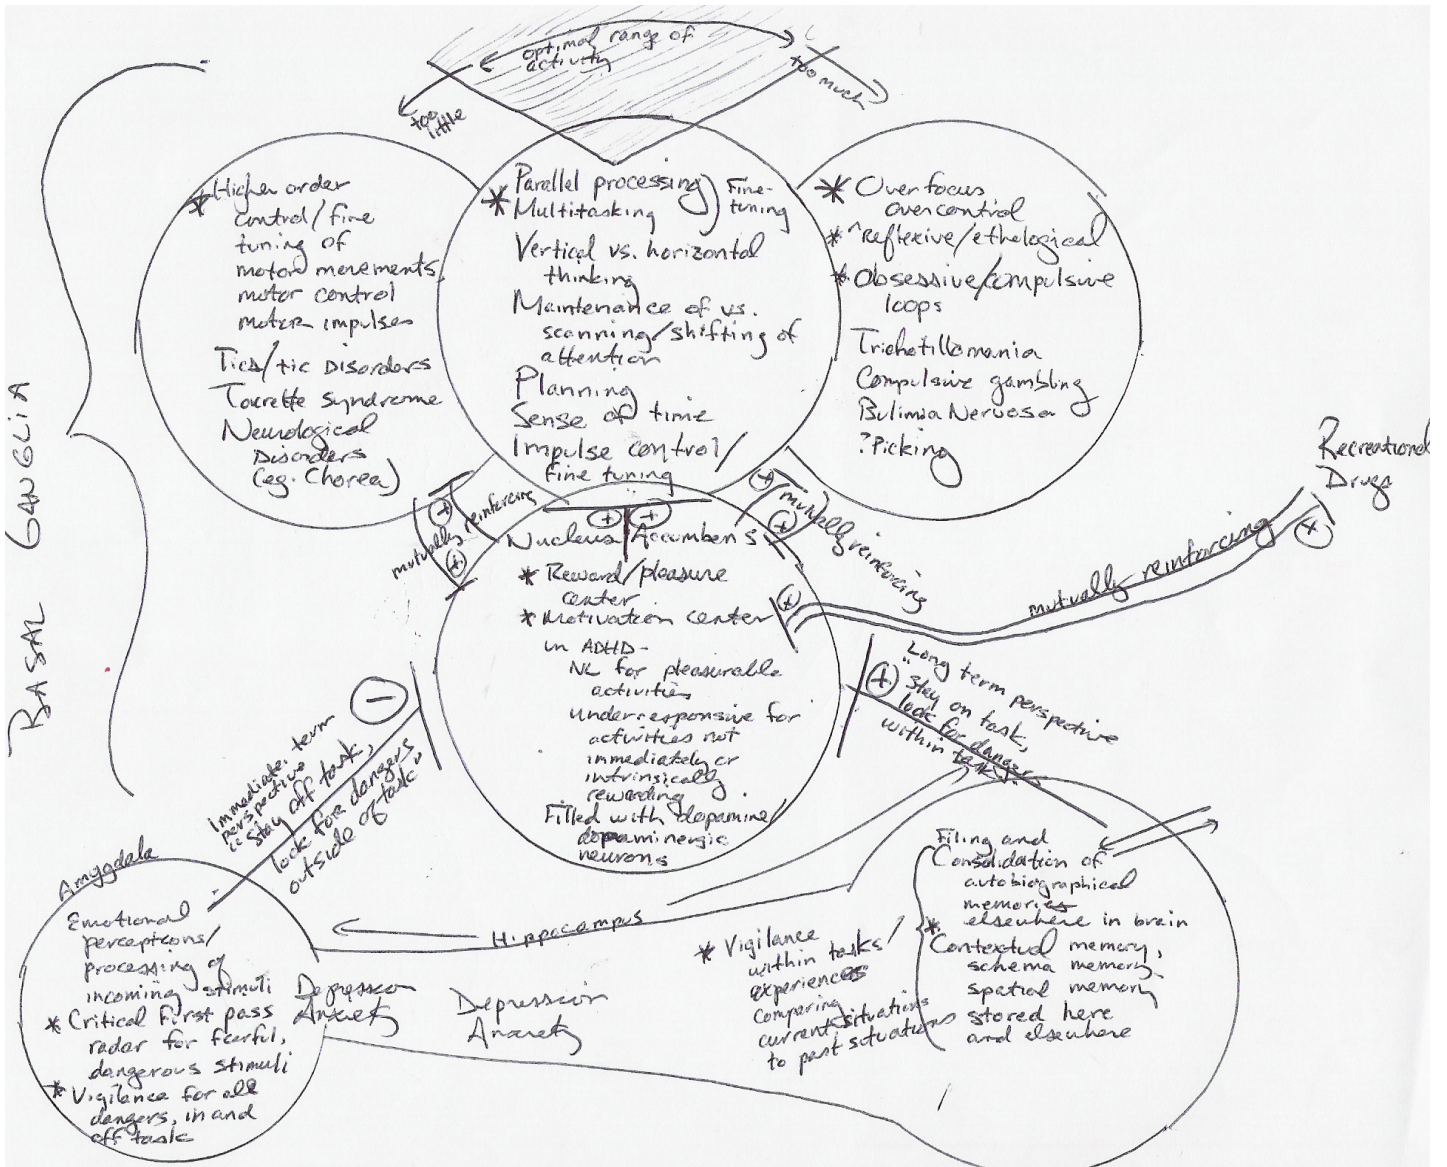 optimal range of
activity
too
little
too much
BASAL GANGLIA
* Higher order
control/fine
tuning of
motor movements,
motor control
motor impulses
Tics/tic Disorders
Tourette Syndrome
Neurological
Disorders
(eg. Chorea)
* Parallel processing
Multitasking
Fine-
tuning
Vertical vs. horizontal
thinking
Maintenance of vs.
scanning/shifting of
attention
Planning
Sense of time
Impulse control/
fine tuning
* Overfocus
overcontrol
* "Reflexive/ethological
* Obsessive/compulsive
loops
Trichotillomania
Compulsive gambling
Bulimia Nervosa
?Picking
Recreational
Drugs
+
mutually reinforcing
+
mutually reinforcing
+
+
+
+
mutually reinforcing
+
+
Nucleus Accumbens
* Reward/pleasure
center
* Motivation center
in ADHD-
NL for pleasurable
activities
underresponsive for
activities not
immediately or
intrinsically
rewarding
Filled with dopamine/
dopaminergic
neurons
−
Immediate term
perspective
"Stay off task,
look for dangers
outside of task"
+
Long term perspective
"Stay on task,
look for dangers
within task"
Amygdala
Emotional
perceptions/
processing of
incoming stimuli
* Critical first pass
radar for fearful,
dangerous stimuli
* Vigilance for all
dangers, in and
off task
Depression
Anxiety
Depression
Anxiety
Hippocampus
* Vigilance
within tasks/
experiences
comparing
current situations
to past situations
Filing and
Consolidation of
autobiographical
memories
elsewhere in brain
* Contextual memory,
schema memory
spatial memory
stored here
and elsewhere